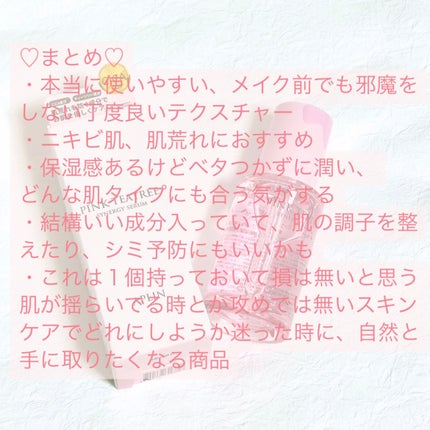 ♡まとめ♡
・本当に使いやすい、メイク前でも邪魔を
しない丁度良いテクスチャー
・ニキビ肌、肌荒れにおすすめ
・保湿感あるけどベタつかずに潤い、
どんな肌タイプにも合う気がする
・結構いい成分入っていて、肌の調子を整
えたり、シミ予防にもいいかも
・これは１個持っておいて損は無いと思う
肌が揺らいでる時とか攻めでは無いスキン
ケアでどれにしようか迷った時に、自然と
手に取りたくなる商品
PINK TEATREE
SYNERGY SERUM